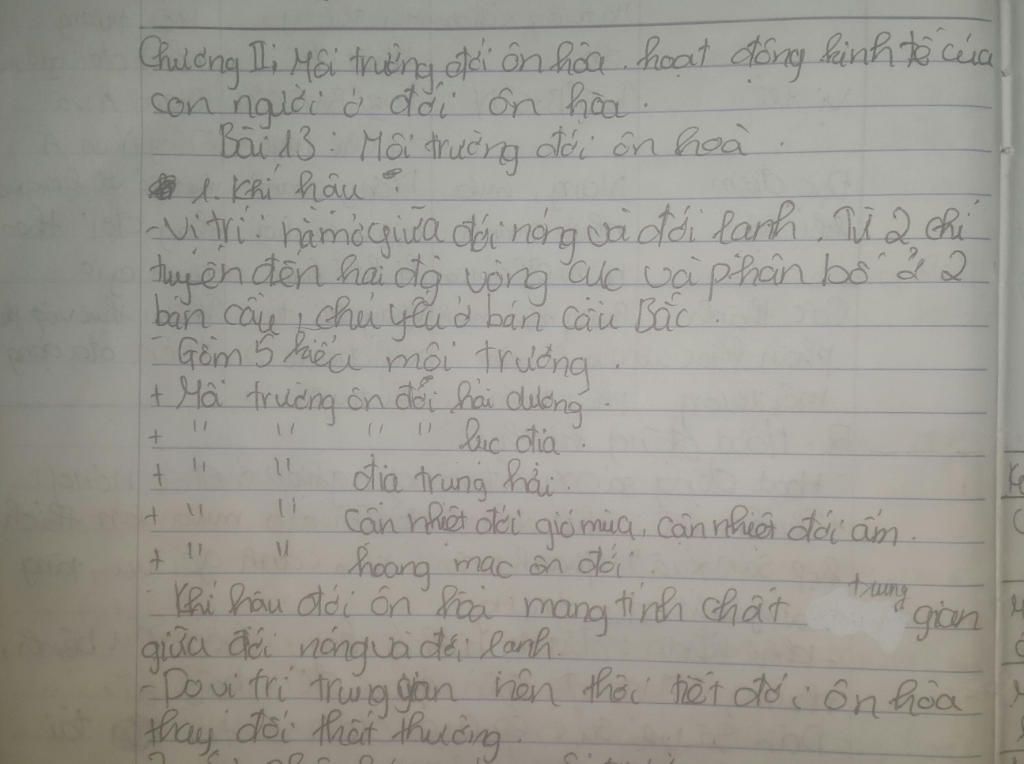 Chương II: Môi trường đới ôn hòa. hoạt động kinh tế của
con người ở đới ôn hòa.
Bài 13: Môi trường đới ôn hoà.
1. Khí hậu:
- Vị trí: nằm ở giữa đới nóng và đới lạnh. Từ 2 chí
tuyến đến hai đg vòng cực và phân bố ở 2
bán cầu, chủ yếu ở bán cầu Bắc.
- Gồm 5 kiểu môi trường.
+ Môi trường ôn đới hải dương.
+ " " " " lục địa.
+ " " địa trung hải.
+ " " cận nhiệt đới gió mùa, cận nhiệt đới ẩm.
+ " " hoang mạc ôn đới
Khí hậu đới ôn hòa mang tính chất trung gian
giữa đới nóng và đới lạnh.
- Do vị trí trung gian nên thời tiết đới ôn hòa
thay đổi thất thường.